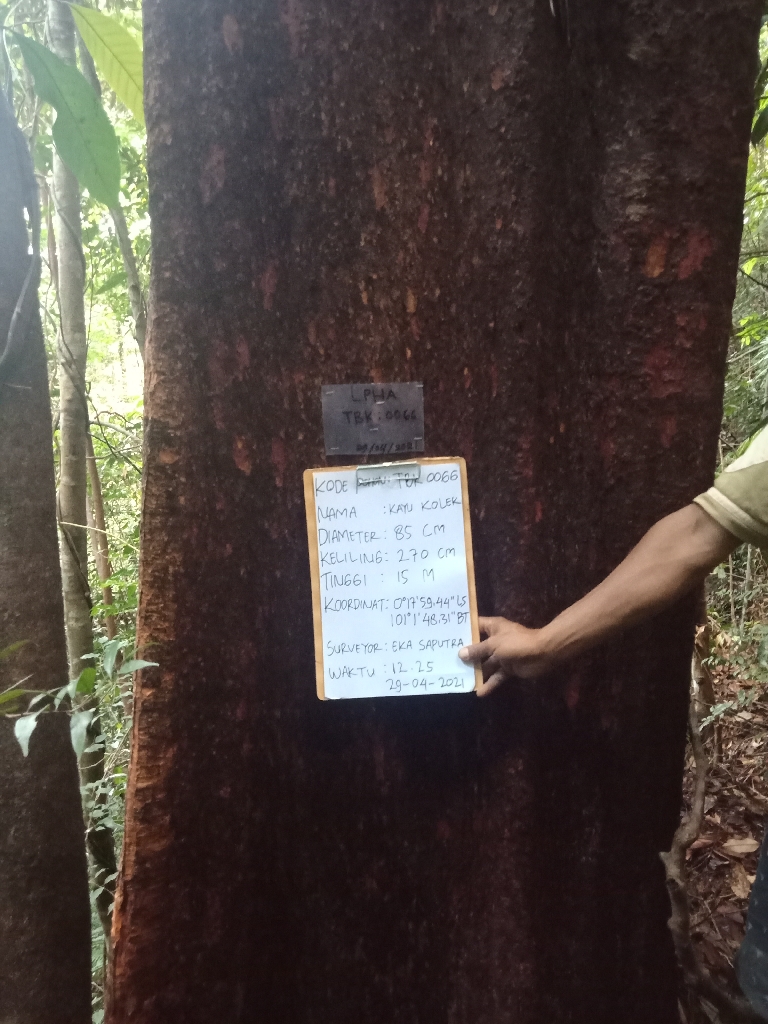 LPHA
TBK: 0066
29/04/2021
KODE POHON: TBK 0066
NAMA : KAYU KOLEK
DIAMETER: 85 CM
KELILING: 270 CM
TINGGI : 15 M
KOORDINAT: 0°17'59.44" LS
101°1'48.31" BT
SURVEYOR: EKA SAPUTRA
WAKTU : 12.25
29-04-2021